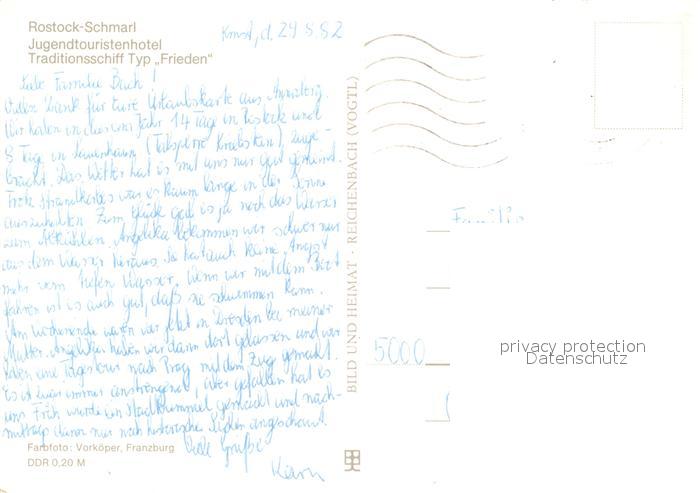 Rostock-Schmarl
Jugendtouristenhotel
Traditionsschiff Typ „Frieden"
d. 24.8.82
Liebe Familie Bach!
Vielen Dank für Eure Urlaubskarte aus Annaberg.
Wir haben in diesem Jahr 14 Tage in Rostock und
5 Tage in (Talsperre Kriebstein) zuge-
bracht. Das Wetter hat es mit uns nur gut gemeint.
Trotz Strandkorbes war es kaum lange in der Sonne
auszuhalten. Zum Glück gab es ja noch das Wasser
zum Abkühlen. Angelika bekommen wir schwer nur
aus dem Wasser heraus. Sie hat auch keine Angst
mehr vom tiefen Wasser. Wenn wir mit dem Boot
fahren ist es auch gut, daß sie schwimmen kann.
Am Wochenende waren wir jetzt in Dresden bei meiner
Mutter. Angelika haben wir dann dort gelassen und wir
haben eine Tagestour nach Prag mit dem Zug gemacht.
Es ist zwar immer anstrengend, aber gefallen hat es
uns. Früh wurde ein Stadtbummel gemacht und nach-
mittag dann nur noch historische angeschaut.
Viele Grüße
Karin
Farbfoto: Vorköper, Franzburg
DDR 0,20 M
BILD UND HEIMAT · REICHENBACH (VOGTL)
Familie
5000
privacy protection
Datenschutz